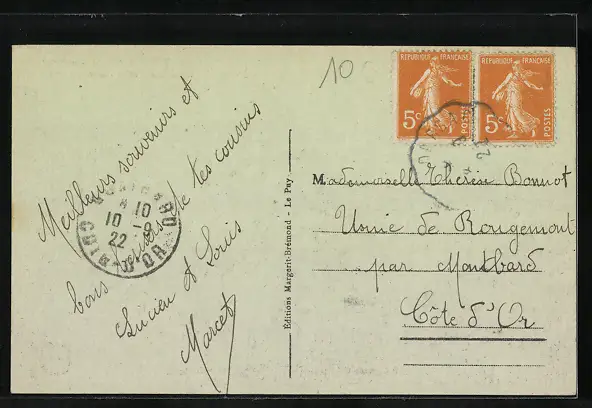 10
Meilleurs souvenirs et
bons baisers de tes cousins
Lucien et Louis
Marcel
10
10 -8
22
D'OR
Éditions Margerit-Brémond - Le Puy
RÉPUBLIQUE FRANÇAISE
5c
POSTES
RÉPUBLIQUE FRANÇAISE
5c
POSTES
Mademoiselle Thérèse Bonnot
Usine de Rougemont
par Montbard
Côte d'Or